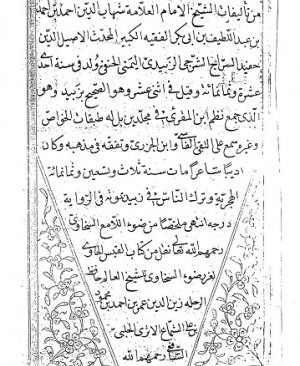 من تأليفات الشيخ الامام العلامة شهاب الدين احمد بن احمد
بن عبد اللطيف بن ابى بكر الفقيه الكبير المحدث الاصيل الدين
حفيد السراج الشرجى الزبيدى اليمنى الحنفى ولد فى سنة احدى
عشرة وثمانمائة وقيل فى اثنى عشر وهو الصحيح بزبيد وهو
الذى جمع نظم ابن المقرئ فى مجلدين بل له طبقات الخواص
وغره سمع على النفيس وابن الجزرى وتفقه فى مذهبه وكان
اديبا شاعرا مات سنة ثلاث وتسعين وثمانمائة
الهجرية وترك الناس فى زبيد بموته فى الرواية
درجة انتهى ملخصا من ضوء اللامع السخاوى
رحمهم الله تعالى نقل من كتاب القبس الحاوى
لغرر ضوء السخاوى للشيخ العالم
الرحلة زين الدين عمر بن احمد بن
بن على الشماع الاثرى الحلبى
الشافعى رحمهم الله